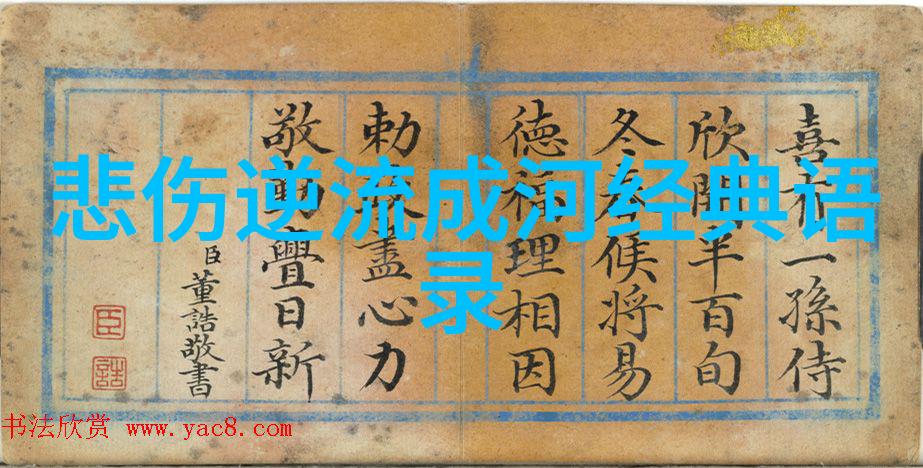 悲伤逆流成河经典语
录
喜亦一孫侍
欣開半百旬
冬春候将易
德福理相因
勅盡心力
敬勤亹日新
臣董誥敬書
臣
誥
书法欣赏 www.yac8.com